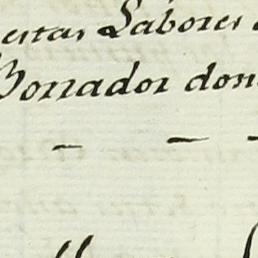 estas Labores
Borrador don